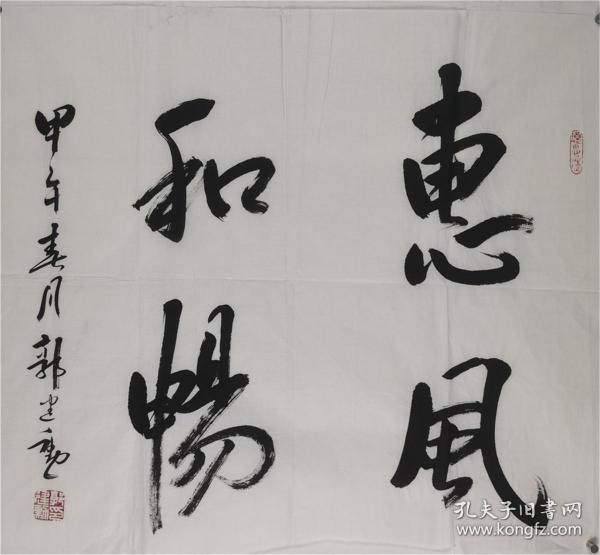 惠風
和暢
甲午春月郭建勳
孔夫子旧书网
www.kongfz.com